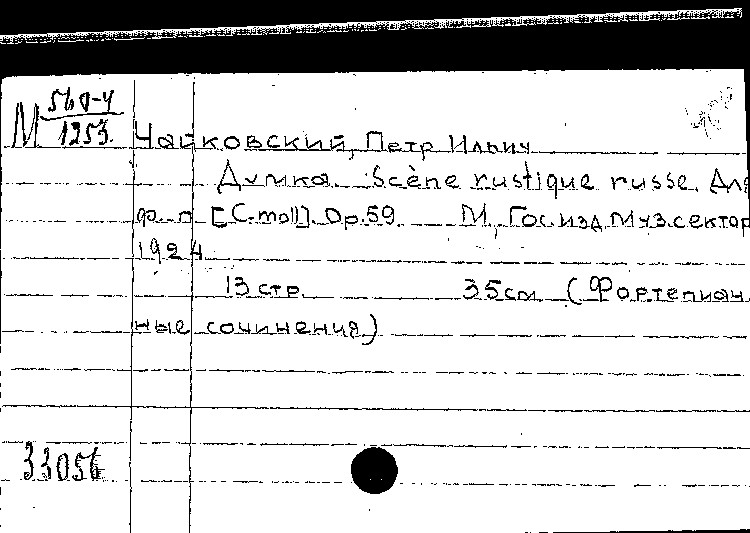 М 560-4
1253
Чайковский, Петр Ильич
Думка. Scène rustique russe. Для
ф.-п. [C-moll]. Ор. 59. М., Гос. изд. Муз. сектор
1924
13 стр. 35 см (Фортепиан
ные сочинения)
33056